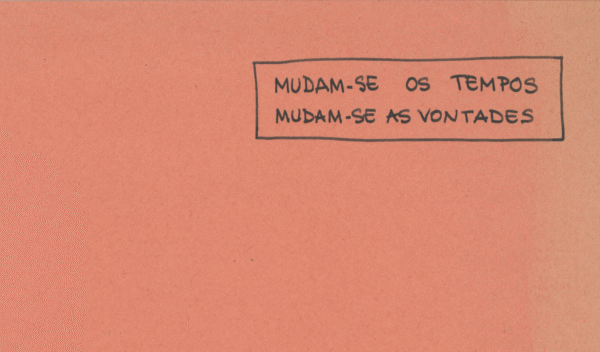 MUDAM-SE OS TEMPOS
MUDAM-SE AS VONTADES